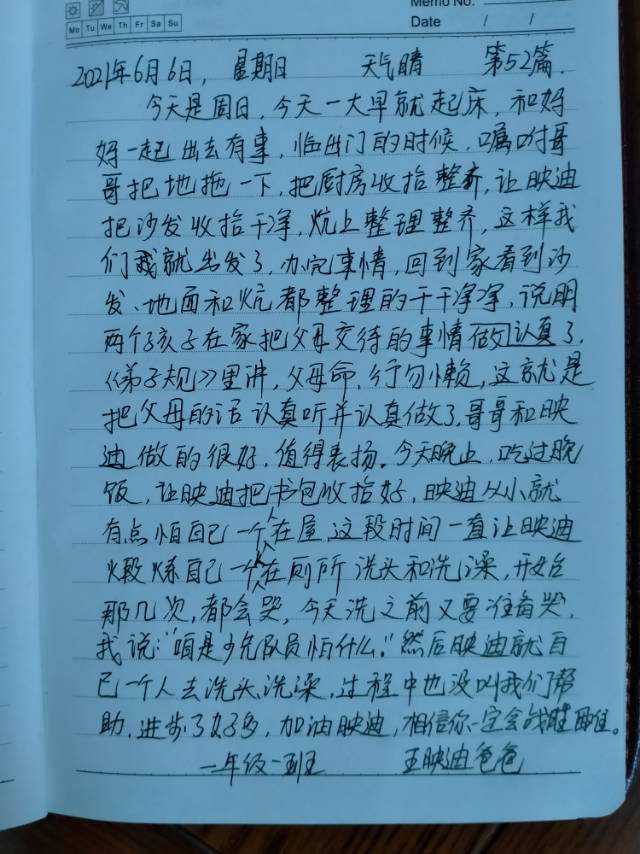 Memo No.
Mo Tu We Th Fr Sa Su
Date / /
2021年6月6日，星期日 天气晴 第52篇.
今天是周日，今天一大早就起床，和妈
妈一起出去有事，临出门的时候，嘱咐哥
哥把地拖一下，把厨房收拾整齐，让映迪
把沙发收拾干净，炕上整理整齐，这样我
们就出发了，办完事情，回到家看到沙
发、地面和炕都整理的干干净净，说明
两个孩子在家把父母交待的事情做的认真了，
《弟子规》里讲，父母命，行勿懒，这就是
把父母的话认真听并认真做了，哥哥和映
迪做的很好，值得表扬。今天晚上，吃过晚
饭，让映迪把书包收拾好，映迪从小就
有点怕自己一个人在屋，这段时间一直让映迪
锻炼自己一个人在厕所洗头和洗澡，开始
那几次，都会哭，今天洗之前又要准备哭，
我说："咱是少先队员怕什么."然后映迪就自
己一个人去洗头、洗澡，过程中也没叫我们帮
助，进步了好多，加油映迪，相信你一定会战胜困难。
一年级一班 王映迪爸爸